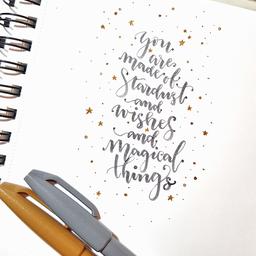 You
are
made of
Stardust
and
wishes
and
magical
things